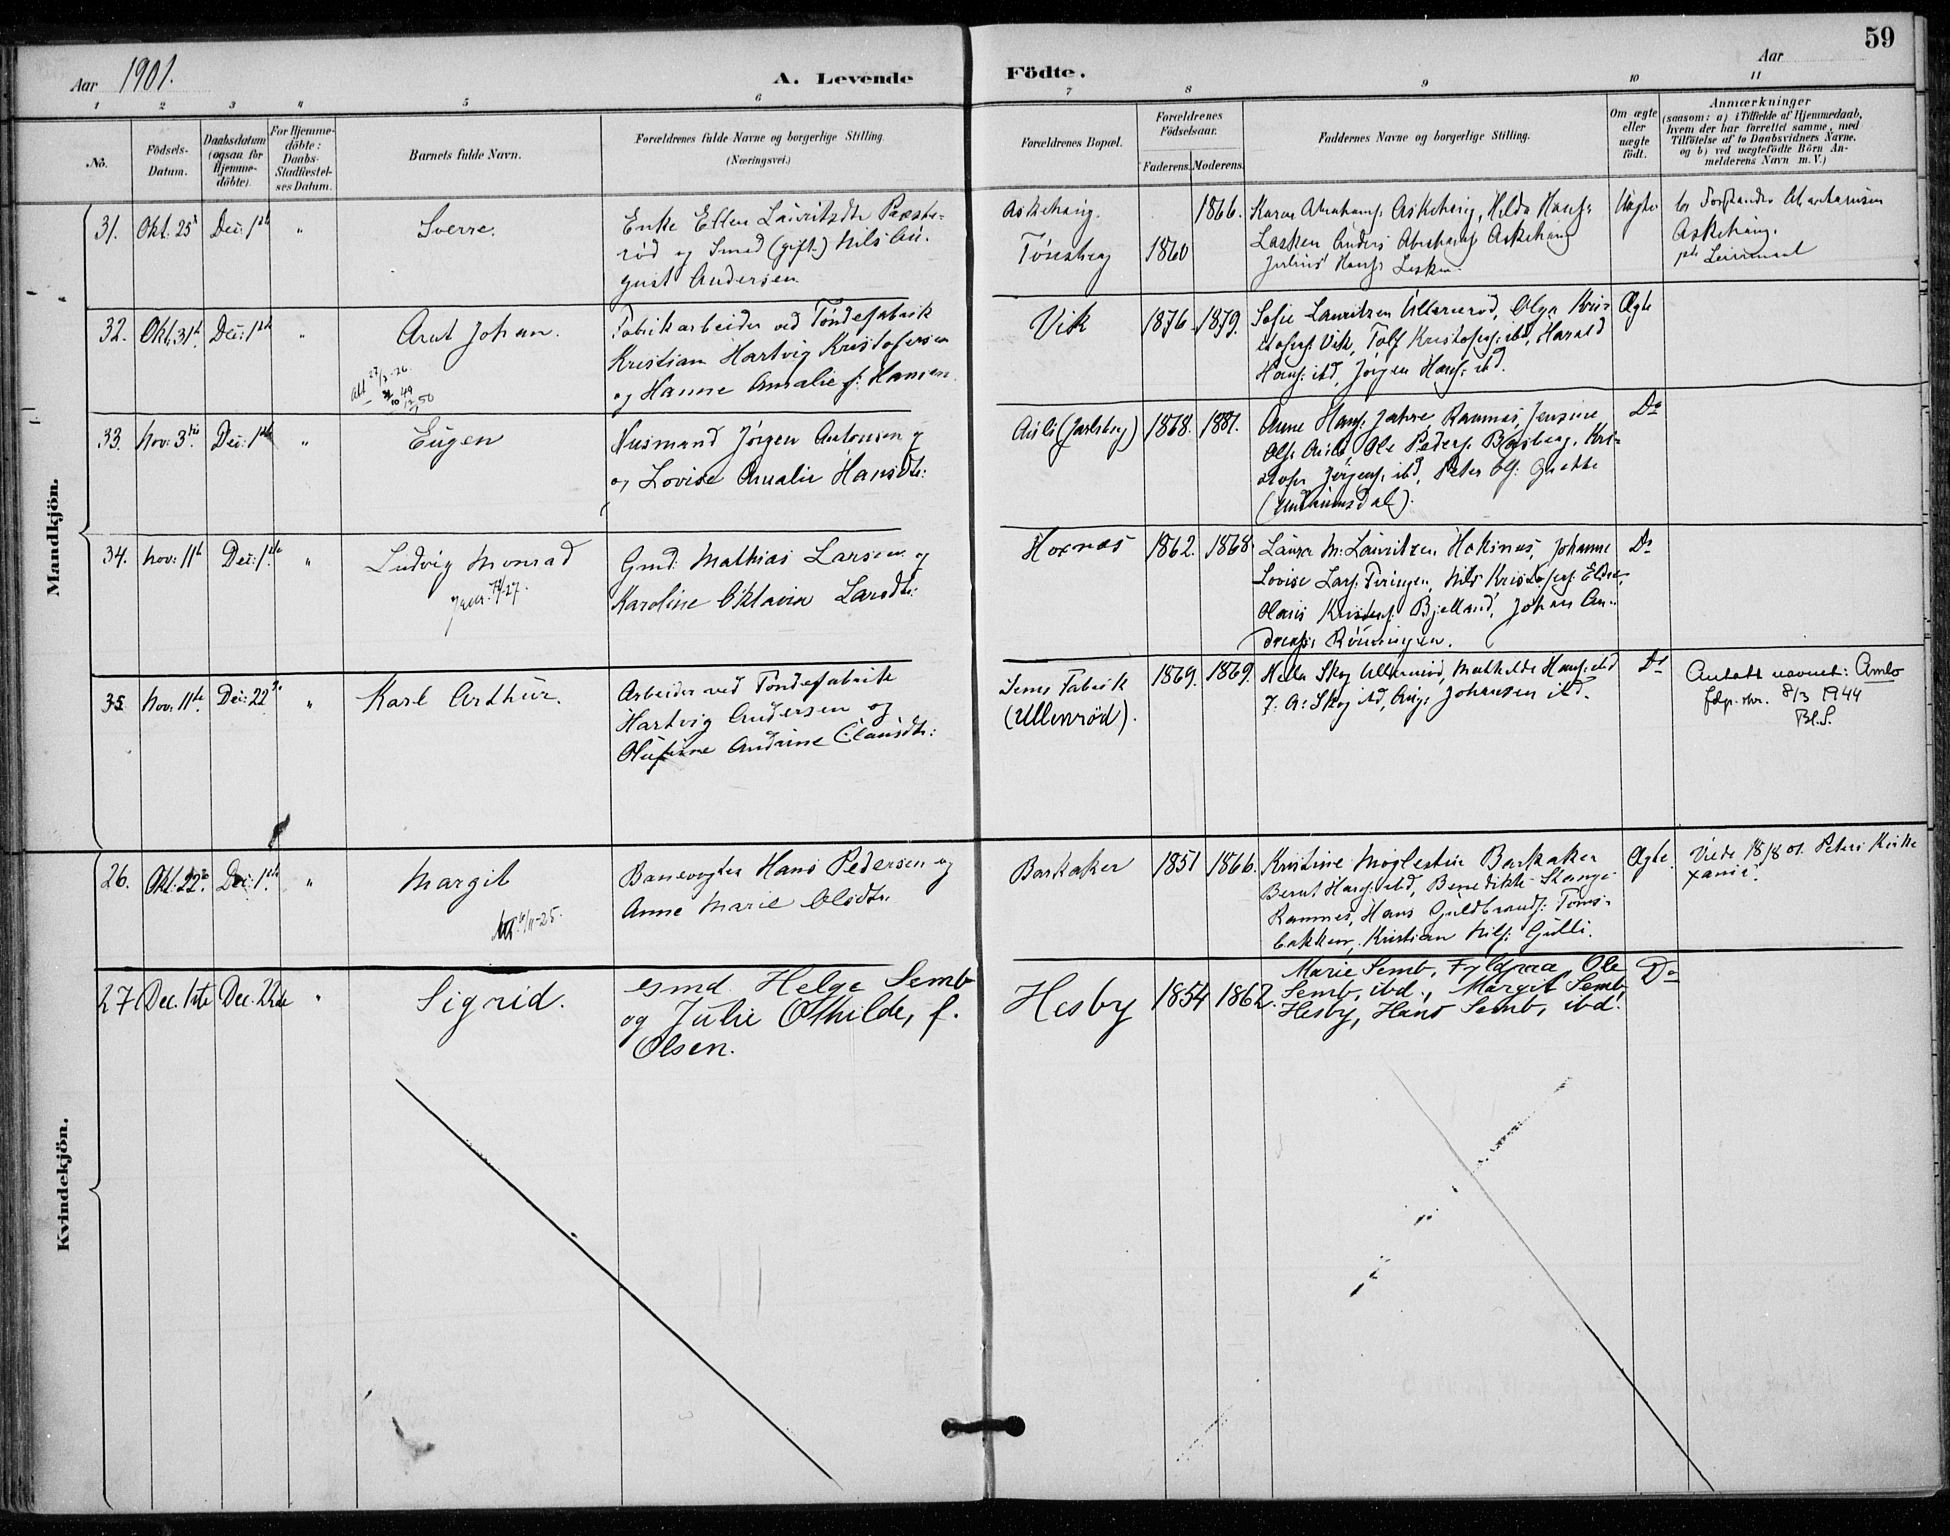 59
Aar 1901.
A. Levende
Födte.
Aar
1 2 3 4 5 6 7 8 9 10 11
No.
Födsels-
Datum.
Daabsdatum
(ogsaa for
Hjemme-
döbte).
For Hjemme-
döbte:
Daabs-
Stadfæstel-
ses Datum.
Barnets fulde Navn.
Forældrenes fulde Navne og borgerlige Stilling.
(Næringsvei.)
Forældrenes Bopæl.
Forældrenes
Födselsaar.
Faderens. Moderens.
Faddernes Navne og borgerlige Stilling.
Om ægte
eller
uægte
födt.
Anmærkninger
(saasom: a) i Tilfælde af Hjemmedaab,
hvem der har forrettet samme, med
Tilföielse af to Daabsvidners Navne.
og b) ved uægtefödte Börn An-
melderens Navn m. V.)
Mandkjön.
31. Okt. 25 Dec: 1ste " Sverre.
Enke Ellen Lauritsdtr
rød og Smed (gift) Nils Au-
gust Andersen
Askehaug.
Tönsberg
1860 1866.
Karen Abrahams: Askehaug, Hilda Hans:
Lasken Anders Abrahams: Askehaug
Julius Hans: Lasken.
Uægte
Askehaug.
32. Okt. 31te Dec: 1ste " Arnt Johan.
Fabrikarbeider ved Töndefabrik
Kristian Hartvig Kristofersen
og Hanne Amalie f: Hansen.
Vik 1876 1879.
Sofie Lauritzen Ullenröd, Olga Kris-
tofers: Vik, Tolf Kristofers: ibd, Harald
Hans: ibd, Jörgen Hans: ibd.
Ægte
33. Nov: 3die Dec: 1ste " Eugen
Husmand Jörgen Antonsen og
og Lovise Amalie Hansdtr:
(Jarlsberg) 1868. 1881.
Anne Hans: Jahre, Ramnes, Jensine
Ols: Ole Peders: Basberg, Kris-
tofer Jörgens: ibd, Peter Ols:
Do
34. Nov: 11te Dec: 1ste " Ludvig Monrad
Gmd: Mathias Larsen og
Karoline Oktavia Larsdtr:
1862. 1868.
Laura M: Lauritzen, Johanne
Lovise Lars: Nils Kristofers:
Kristens: Bjelland, Johan An-
dreas: Rönningen.
Do
35 Nov: 11te Dec: 22de " Karl Arthur.
Arbeider ved Töndefabrik
Hartvig Andersen og
Olufine Andrine Clausdtr:
Sems Fabrik
(Ullenröd).
1869. 1869.
Skog Ullenröd, Mathilde Hans: ibd
F. A: Skog ibd, Aug: Johansen ibd.
Do
Antatt navnet: Amlo
fdep. skr. 8/3 1944
Bl.S.
Kvindekjön.
26. Okt. 22de Dec: 1ste " Margit
11-25.
Banevogter Hans Pedersen og
Anne Marie Olsdtr:
Barkaker 1851 1866.
Kristine Möglestue Barkaker
Bernt Hans: ibd, Benedikte Stange
Ramnes, Hans Guldbrands: Töms-
bakken, Kristian Nils: Gulli.
Ægte.
Viede 18/8 01. Petri Kirke
Xania.
27 Dec. 1ste Dec. 22de " Sigrid.
Gmd. Helge Semb
og Julie Othilde, f.
Olsen.
Hesby 1854 1862.
Marie Semb, Fyldpaa Ole
Semb, ibd., Margit Semb
Hesby, Hans Semb, ibd.
Do